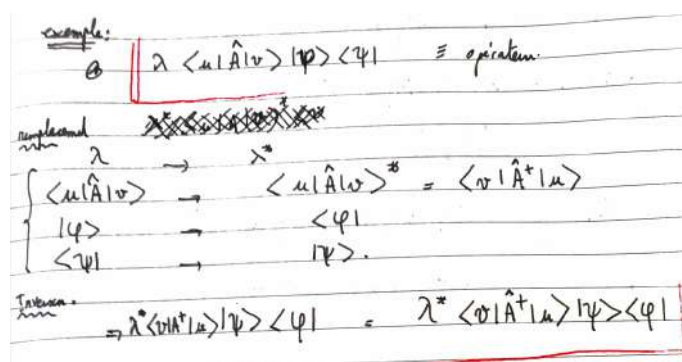 exemple:
⊕ λ <u|Â|v> |φ> <ψ| ≡ opérateur.
remplacement
λ → λ*
<u|Â|v> → <u|Â|v>* = <v|Â⁺|u>
|φ> → <φ|
<ψ| → |ψ>.
Inversion.
⇒ λ*<v|A⁺|u>|ψ> <φ| = λ* <v|Â⁺|u> |ψ><φ|